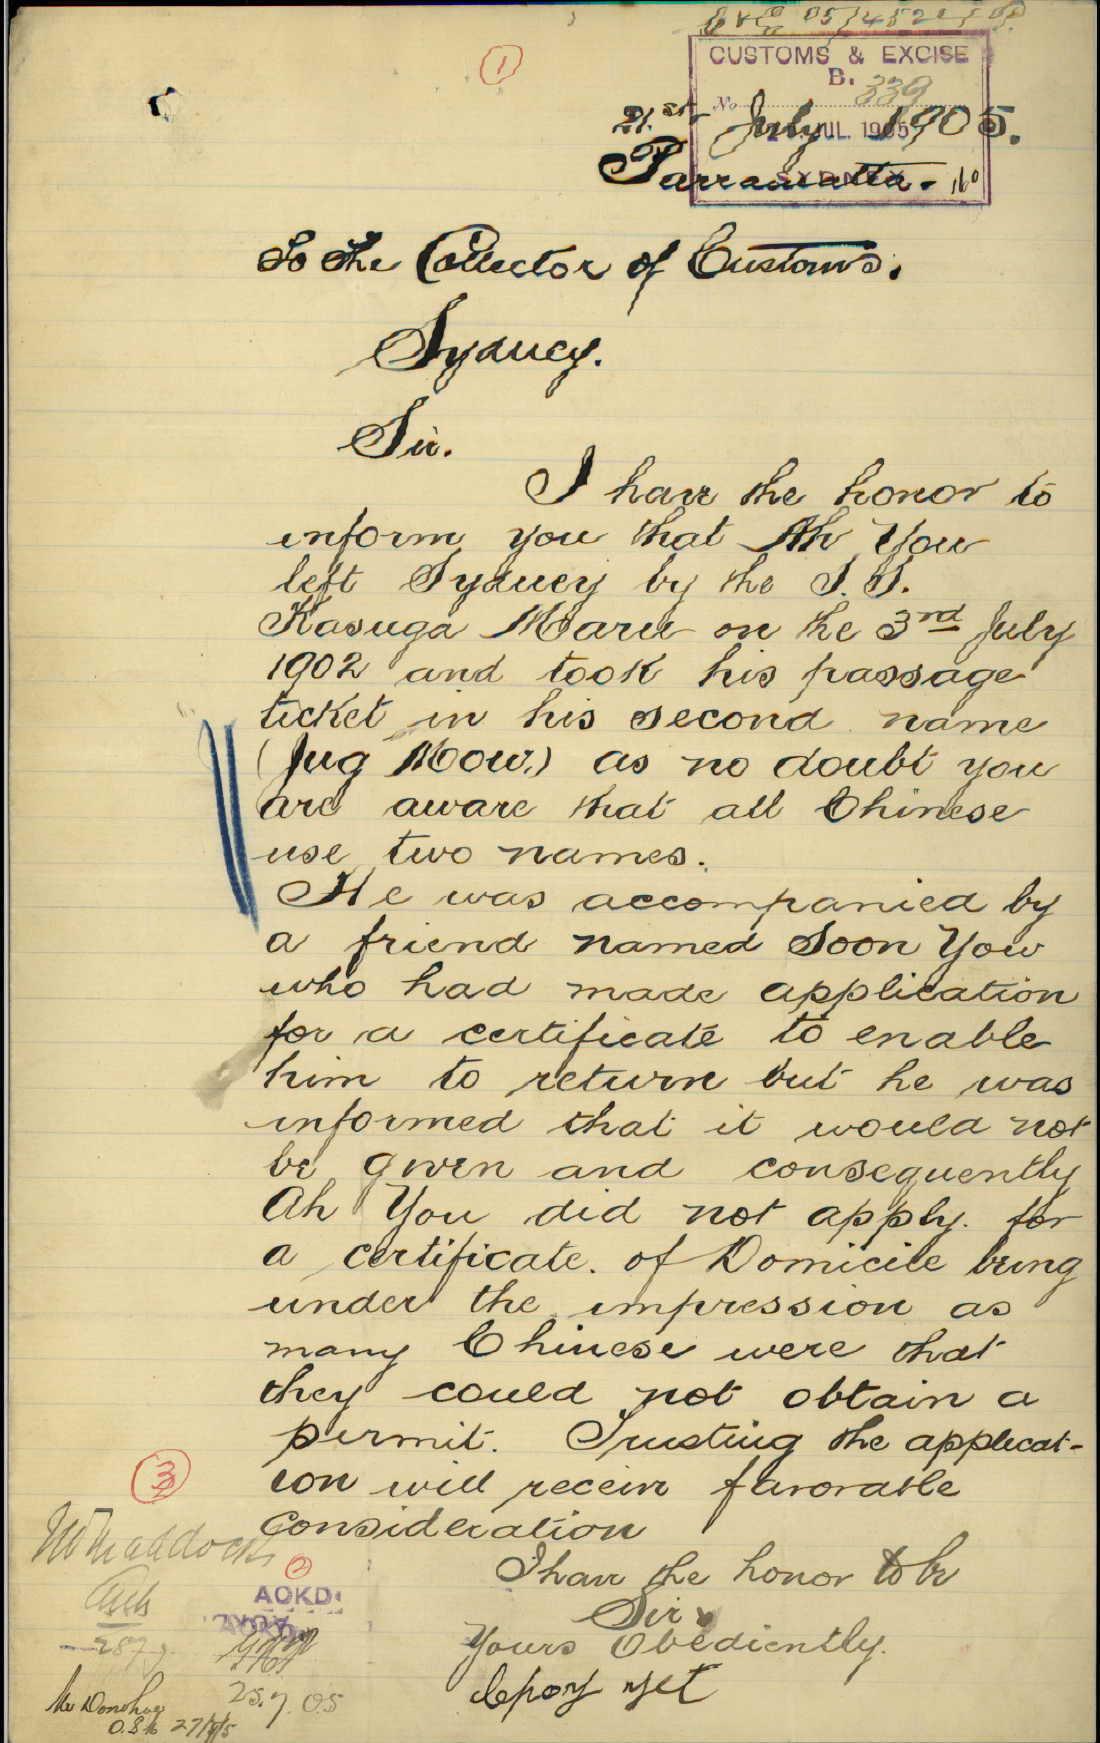 1
CUSTOMS & EXCISE
B.
No 339
JUL. 1905
SYDNEY
21st July 1905.
Parramatta.
To the Collector of Customs.
Sydney.
Sir.
I have the honor to
inform you that Ah You
left Sydney by the S.S.
Kasuga Maru on the 3rd July
1902 and took his passage
ticket in his second name
(Jug Mow.) as no doubt you
are aware that all Chinese
use two names.
He was accompanied by
a friend named Soon You
who had made application
for a certificate to enable
him to return but he was
informed that it would not
be given and consequently
Ah You did not apply. for
a certificate. of Domicile being
under the impression as
many Chinese were that
they could not obtain a
permit. Trusting the applicat-
ion will receive favorable
consideration
I have the honor to be
Sir
Yours Obediently.
yet
3
2
ACKD.
25.7.05
Mr Donohue
27/7/5